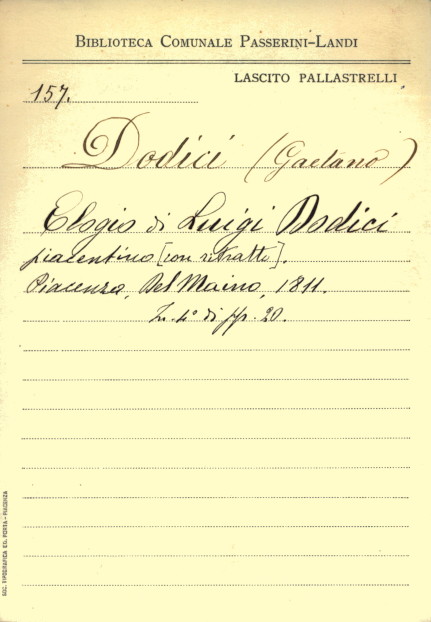 BIBLIOTECA COMUNALE PASSERINI-LANDI
LASCITO PALLASTRELLI
157.
Dodici (Gaetano)
Elogio di Luigi Dodici
piacentino [con ritratto].
Piacenza, Del Maino, 1811.
In 4° di pp. 20.
SOC. TIPOGRAFICA ED. PORTA - PIACENZA